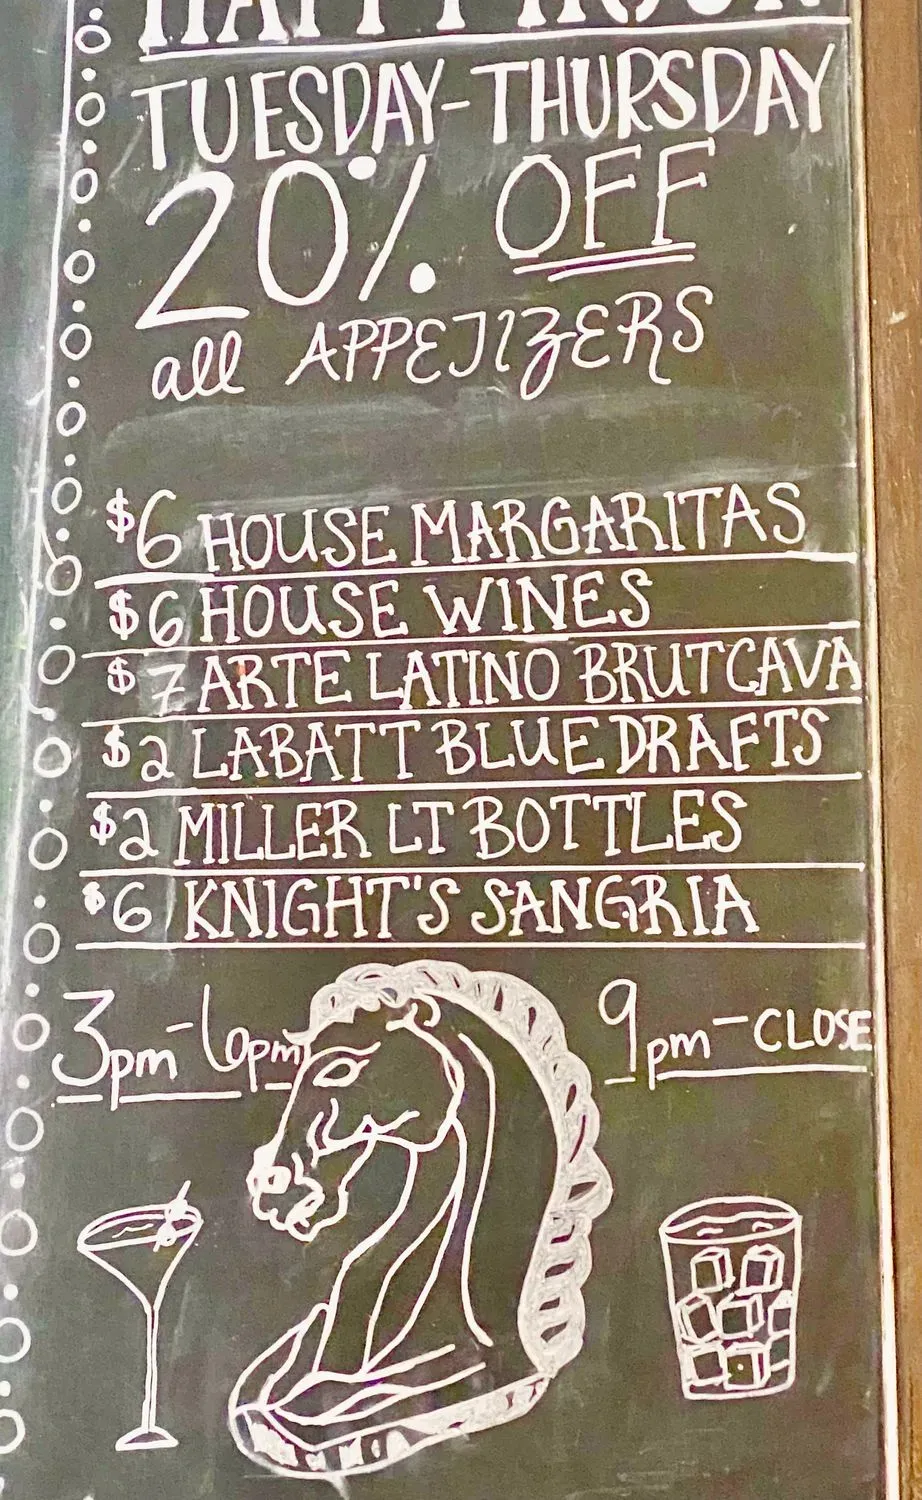 HAPPY HOUR
TUESDAY-THURSDAY
20% OFF
all APPETIZERS
$6 HOUSE MARGARITAS
$6 HOUSE WINES
$7 ARTE LATINO BRUT CAVA
$2 LABATT BLUE DRAFTS
$2 MILLER LT BOTTLES
$6 KNIGHT'S SANGRIA
3pm-6pm 9pm-CLOSE